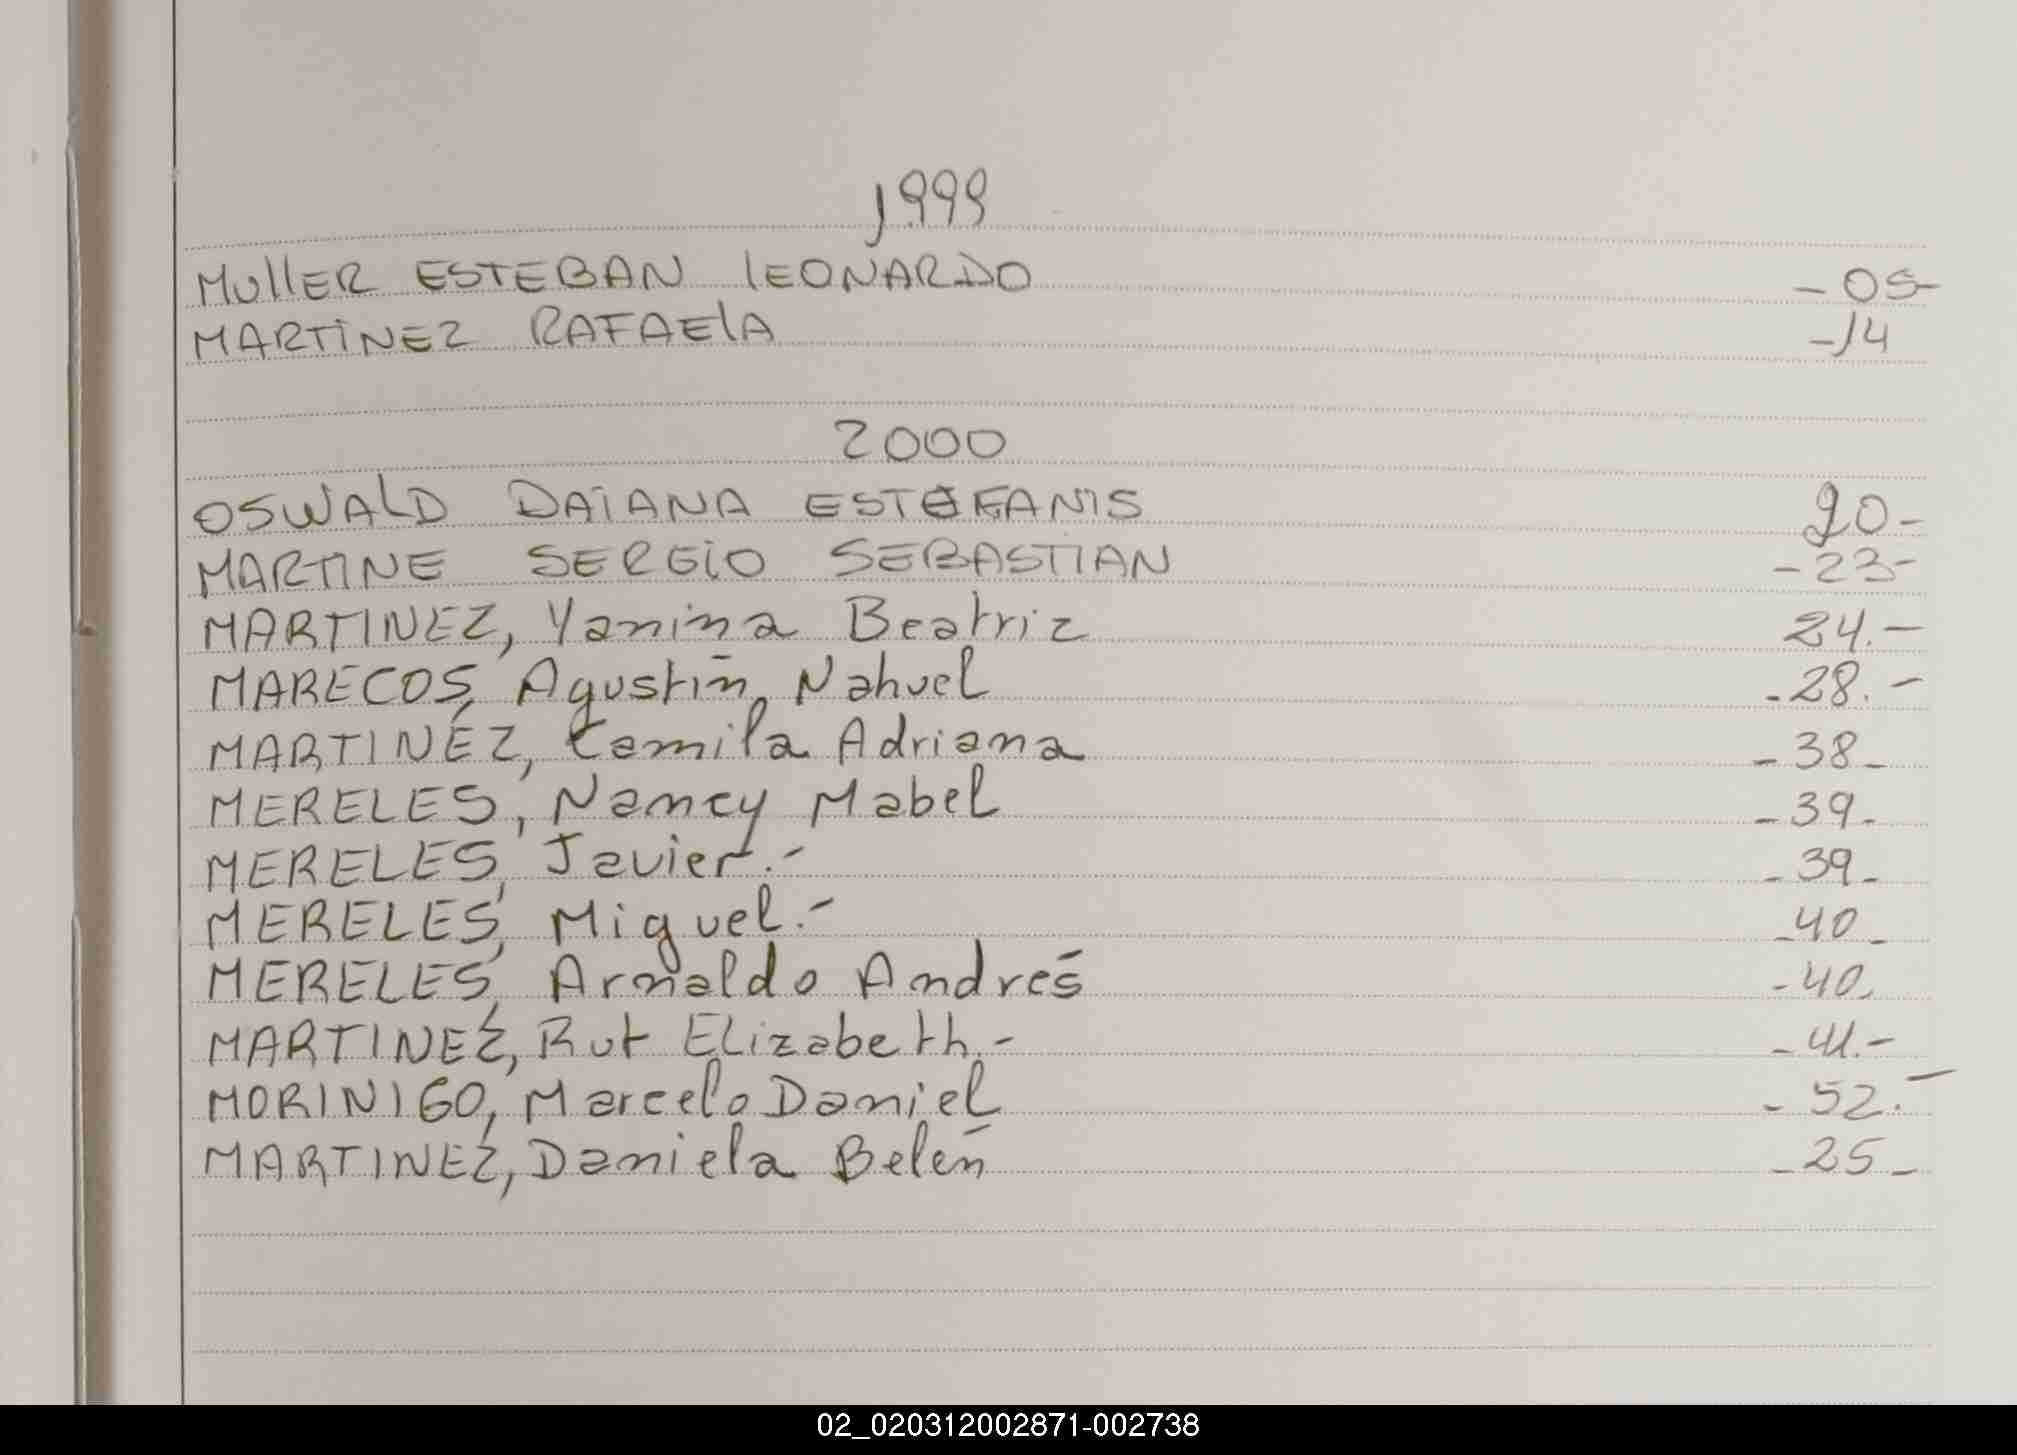 1999
MUllER ESTEBAN lEONARDO -05-
MARTiNEZ RAFAElA -14
2000
OSWALD DAiANA ESTEFANIS 20-
MARTINE SERGiO SEBASTIAN -23-
MARTINEZ, Yanina Beatriz 24.-
MARECOS, Agustín Nahuel -28.-
MARTINEZ, Camila Adriana -38-
MERELES, Nancy Mabel -39-
MERELES, Javier.- -39-
MERELES, Miguel.- -40-
MERELES, Arnaldo Andrés -40-
MARTINEZ, Rut Elizabeth.- -41.-
MORINIGO, Marcelo Daniel -52.-
MARTINEZ, Daniela Belén -25-
02_020312002871-002738